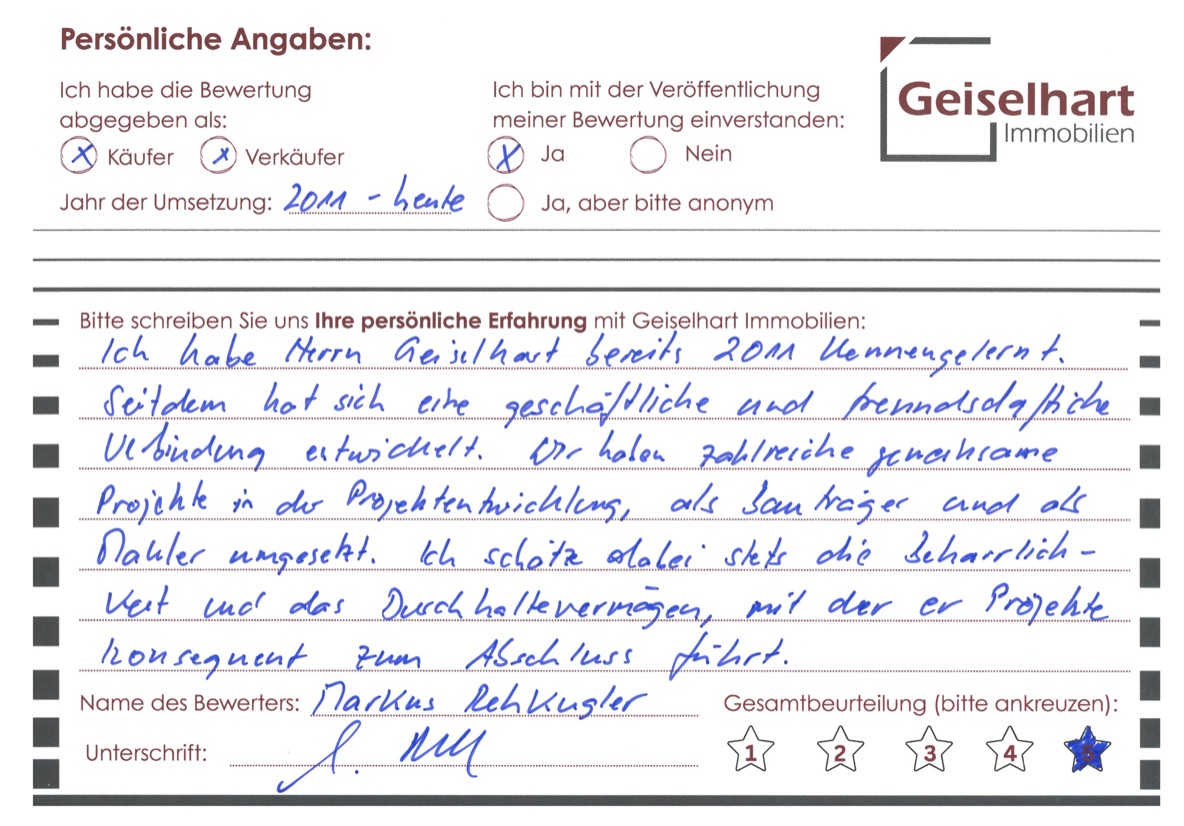 Persönliche Angaben:
Geiselhart
Immobilien
Ich habe die Bewertung
abgegeben als:
Käufer Verkäufer
Jahr der Umsetzung: 2011 - heute
Ich bin mit der Veröffentlichung
meiner Bewertung einverstanden:
Ja Nein
Ja, aber bitte anonym
Bitte schreiben Sie uns Ihre persönliche Erfahrung mit Geiselhart Immobilien:
Ich habe Herrn Geiselhart bereits 2011 kennengelernt.
Seitdem hat sich eine geschäftliche und freundschaftliche
Verbindung entwickelt. Wir haben zahlreiche gemeinsame
Projekte in der Projektentwicklung, als Bauträger und als
Makler umgesetzt. Ich schätze dabei stets die Beharrlich-
keit und das Durchhaltevermögen, mit der er Projekte
konsequent zum Abschluss führt.
Name des Bewerters: Markus Rehkugler
Unterschrift:
Gesamtbeurteilung (bitte ankreuzen):
1 2 3 4 5